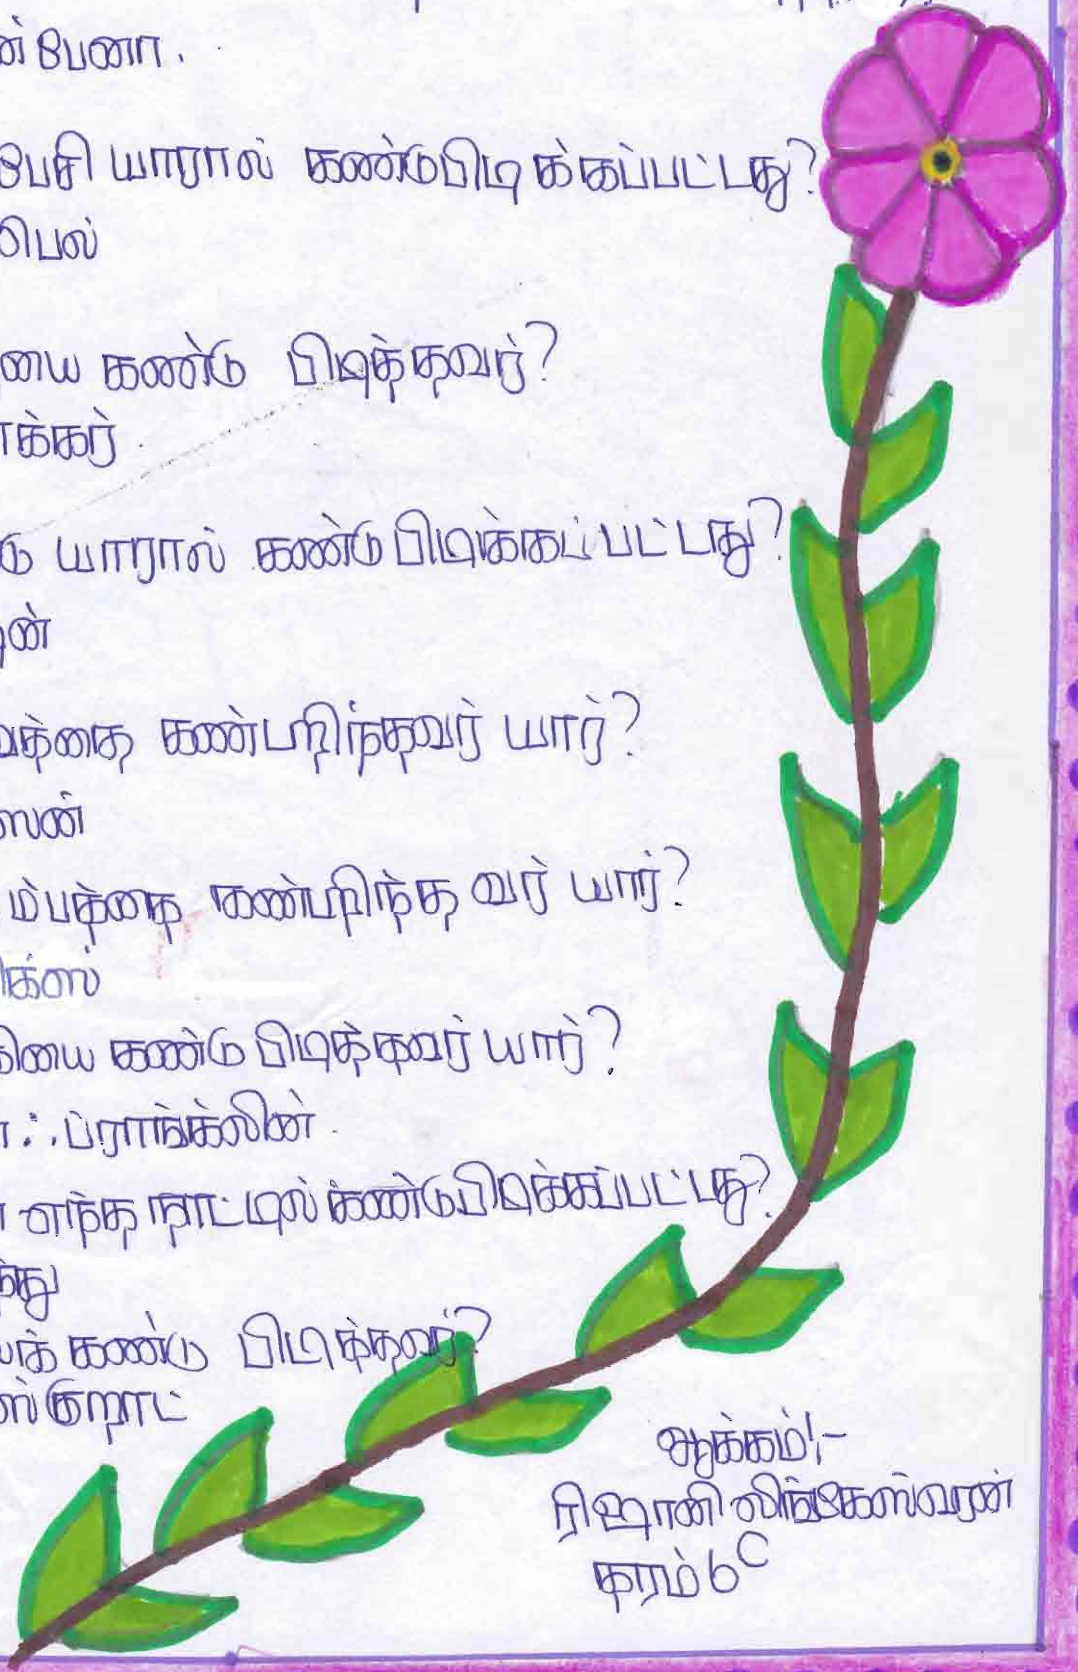 ன் பேனா.
பேசி யாரால் கண்டுபிடிக்கப்பட்டது?
பெல்
யை கண்டு பிடித்தவர்?
ாக்கர்
டு யாரால் கண்டுபிடிக்கப்பட்டது?
ன்
வத்தை கண்டறிந்தவர் யார்?
ஸன்
ம்பத்தை கண்டறிந்த வர் யார்?
க்ஸ்
யை கண்டு பிடித்தவர் யார்?
ஃப்ராங்க்லின்
எந்த நாட்டில் கண்டுபிடிக்கப்பட்டது?
ந்து
கண்டு பிடித்தவர்?
ஸ்குறாட்
ஆக்கம்!-
ரிஷானி லிங்கேஸ்வரன்
தரம் 6 C